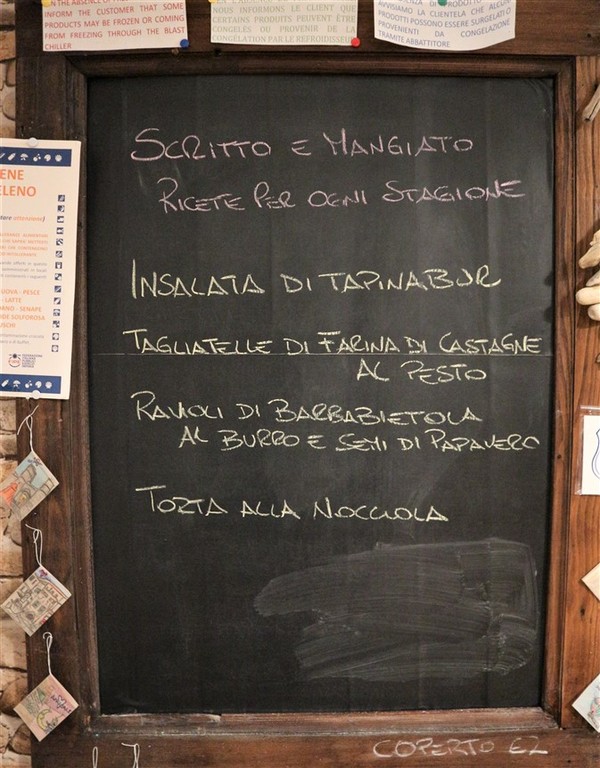 IN THE ABSENCE OF
INFORM THE CUSTOMER THAT SOME
PRODUCTS MAY BE FROZEN OR COMING
FROM FREEZING THROUGH THE BLAST
CHILLER
NOUS INFORMONS LE CLIENT QUE
CERTAINS PRODUITS PEUVENT ÊTRE
CONGELÉS OU PROVENIR DE LA
CONGÉLATION PAR LE REFROIDISSEUR
AVVISIAMO LA CLIENTELA CHE ALCUNI
PRODOTTI POSSONO ESSERE SURGELATI
PROVENIENTI DA CONGELAZIONE
TRAMITE ABBATTITORE
ENE
ELENO
- LATTE
- SENAPE
SCRITTO E MANGIATO
RICETE PER OGNI STAGIONE
INSALATA DI TAPINABUR
TAGLIATELLE DI FARINA DI CASTAGNE
AL PESTO
RAVIOLI DI BARBABIETOLA
AL BURRO E SEMI DI PAPAVERO
TORTA ALLA NOCCIOLA
COPERTO €2